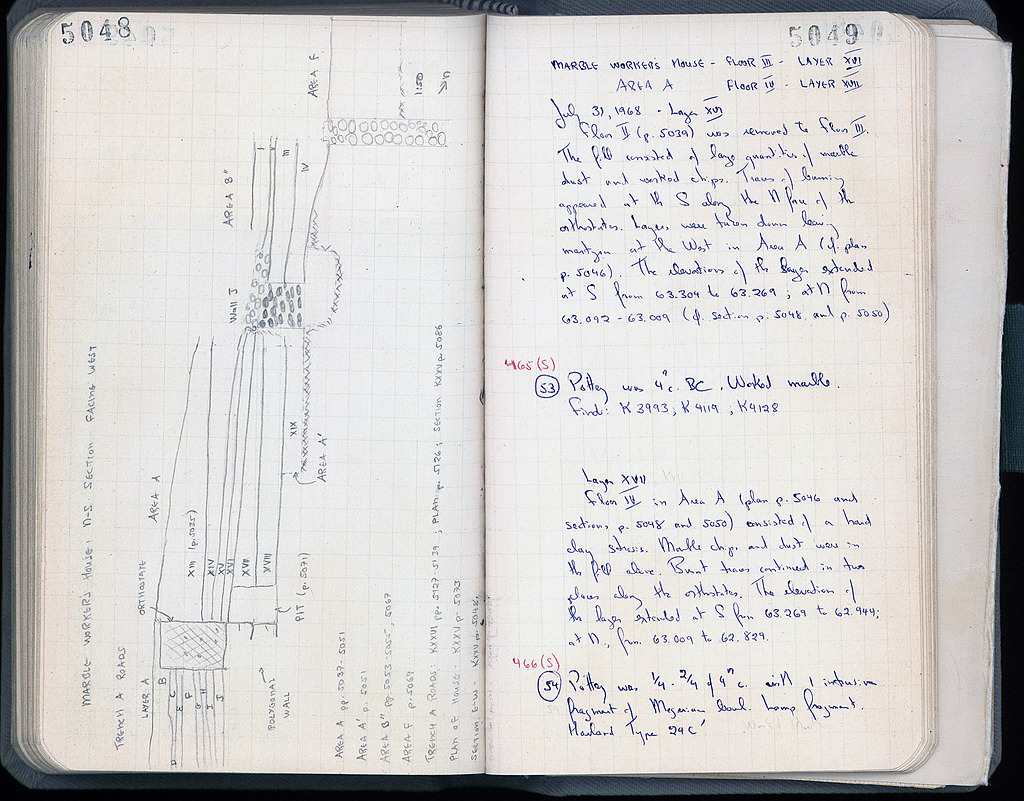 5048
MARBLE WORKERS HOUSE: N-S SECTION FACING WEST
TRENCH A ROADS
LAYER A
ORTHOSTATE
AREA A
Wall J
AREA B"
AREA F
1:50
B
C
E
F
G
H
I
J
D
XIII (p. 5035)
XIV
XV
XVI
XVII
XVIII
XIX
I
III
IV
AREA A'
PIT (p. 5071)
POLYGONAL
WALL
AREA A pp. 5037-5051
AREA A' p. 5051
AREA B" pp. 5053-5055, 5067
AREA F p. 5069
TRENCH A ROADS: KXXVI pp. 5127-5139 ; PLAN p. 5126 ; SECTION KXXV p. 5086
PLAN OF HOUSE - KXXV p. 5073
SECTION E-W - KXXV p. 5048.
5049
MARBLE WORKERS HOUSE - FLOOR III - LAYER XVI
AREA A FLOOR IV - LAYER XVII
July 31, 1968 - Layer XVI
Floor II (p. 5039) was removed to Floor III.
The fill consisted of large quantities of marble
dust and worked chips. Traces of burning
appeared at the S along the N face of the
orthostates. Layers were taken down leaving
at the West in Area A (cf. plan
p. 5046). The elevations of the layer extended
at S from 63.304 to 63.269 ; at N from
63.092 - 63.009 (cf. section p. 5048 and p. 5050)
465(S)
53 Pottery was 4th c. BC. Worked marble
Finds: K 3993; K 4119 ; K 4128
Layer XVII
Floor IV in Area A (plan p. 5046 and
sections p. 5048 and 5050) consisted of a hard
clay stereo. Marble chips and dust were in
the fill above. Burnt traces continued in two
places along the orthostates. The elevation of
the layer extended at S from 63.269 to 62.944;
at N, from 63.009 to 62.829.
466(S)
54 Pottery was 1/4 - 2/4 of 4th c. with 1 intrusive
fragment of Megarian bowl. Lamp fragment.
Howland Type 24C'